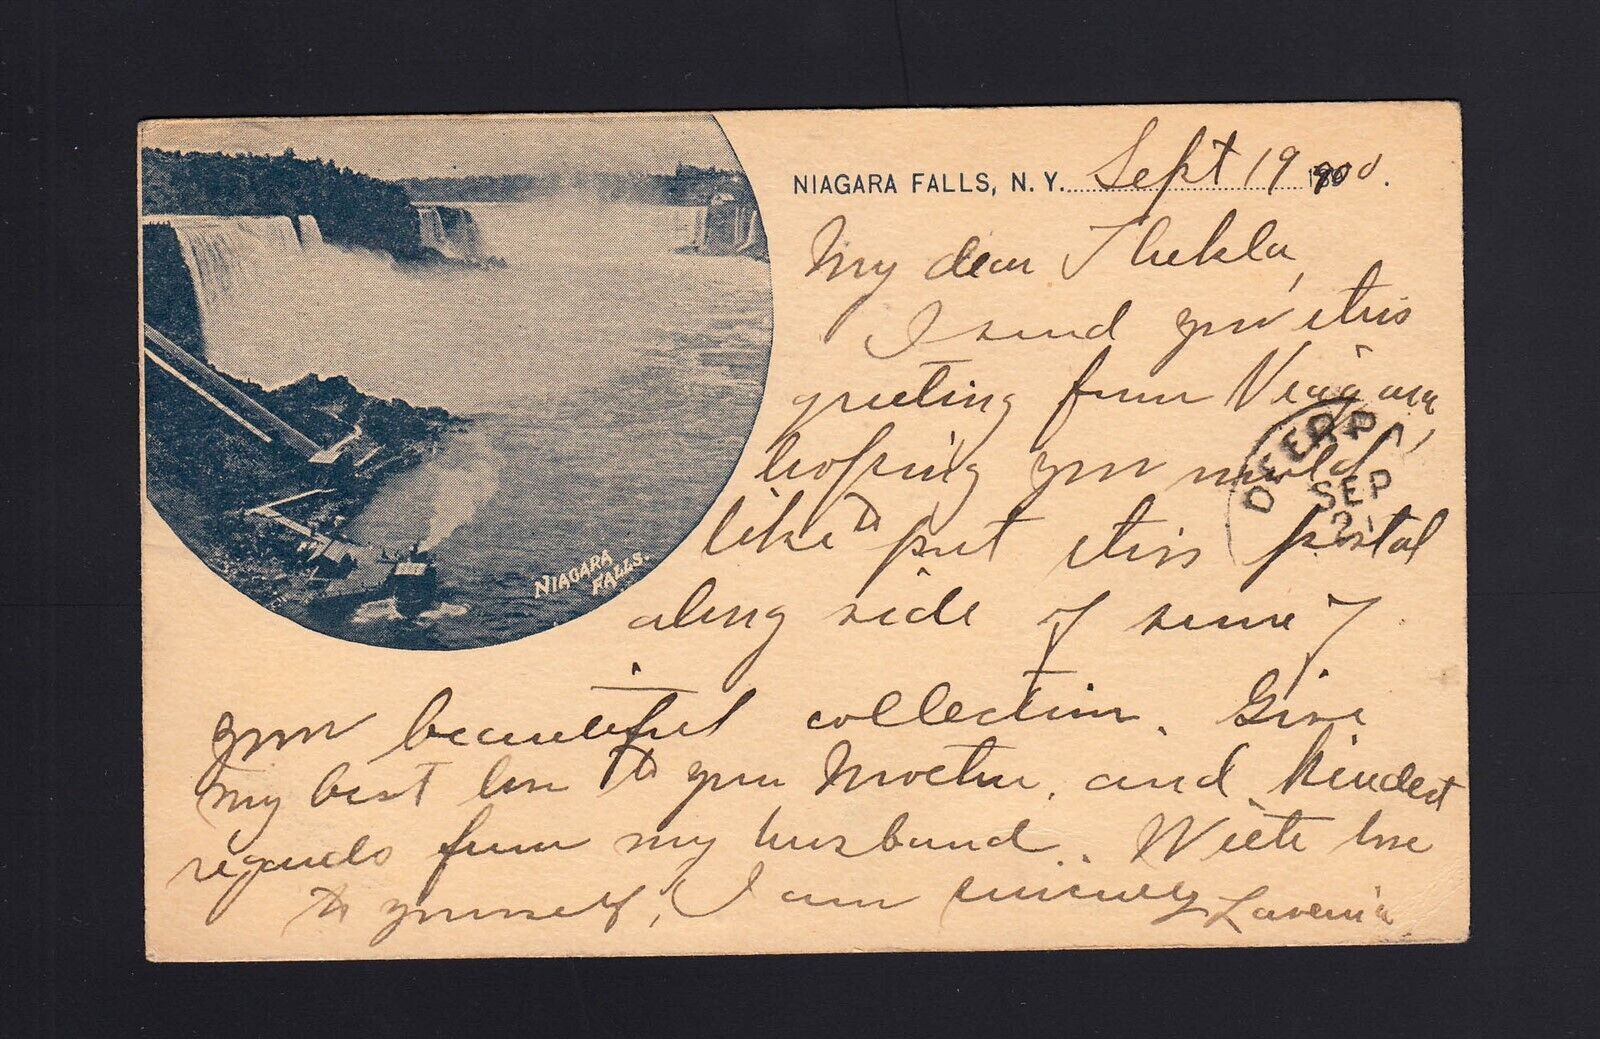 NIAGARA FALLS, N. Y. Sept 19 1900.
My dear Thekla,
I send you this
greeting from Niagara,
hoping you would
like to put this postal
along side of some of
your beautiful collection. Give
my best love to your Mother, and kindest
regards from my husband. With love
to yourself, I am sincerely Lavenia
NIAGARA
FALLS.
DEER P
SEP
21